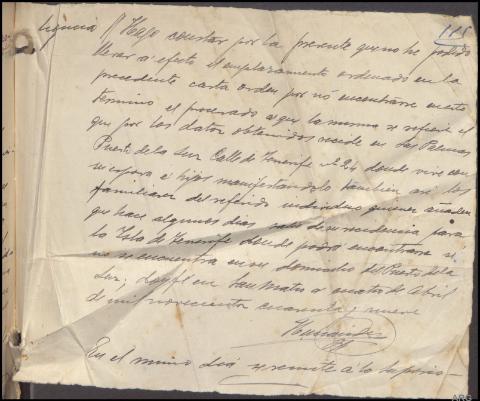 115
ligencia // Hago constar por la presente que no he podido
llevar a efecto el emplazamiento ordenado en la
precedente carta orden por no encontrarse en este
termino el procesado a que la misma se refiere el
que por los datos obtenidos reside en Las Palmas
Puerto de la Luz Calle de Tenerife nº 24 donde vive con
su esposa e hijos manifestandolo tambien asi los
familiares del referido individuo quienes añaden
que hace algunos dias de su residencia para
la Isla de Tenerife donde podra encontrarse si
no se encuentra en su domicilio del Puerto de la
Luz; doy fé en San Mateo a cuatro de Abril
de mil novecientos cuarenta y nueve
En el mismo dia se remite a la
ARG